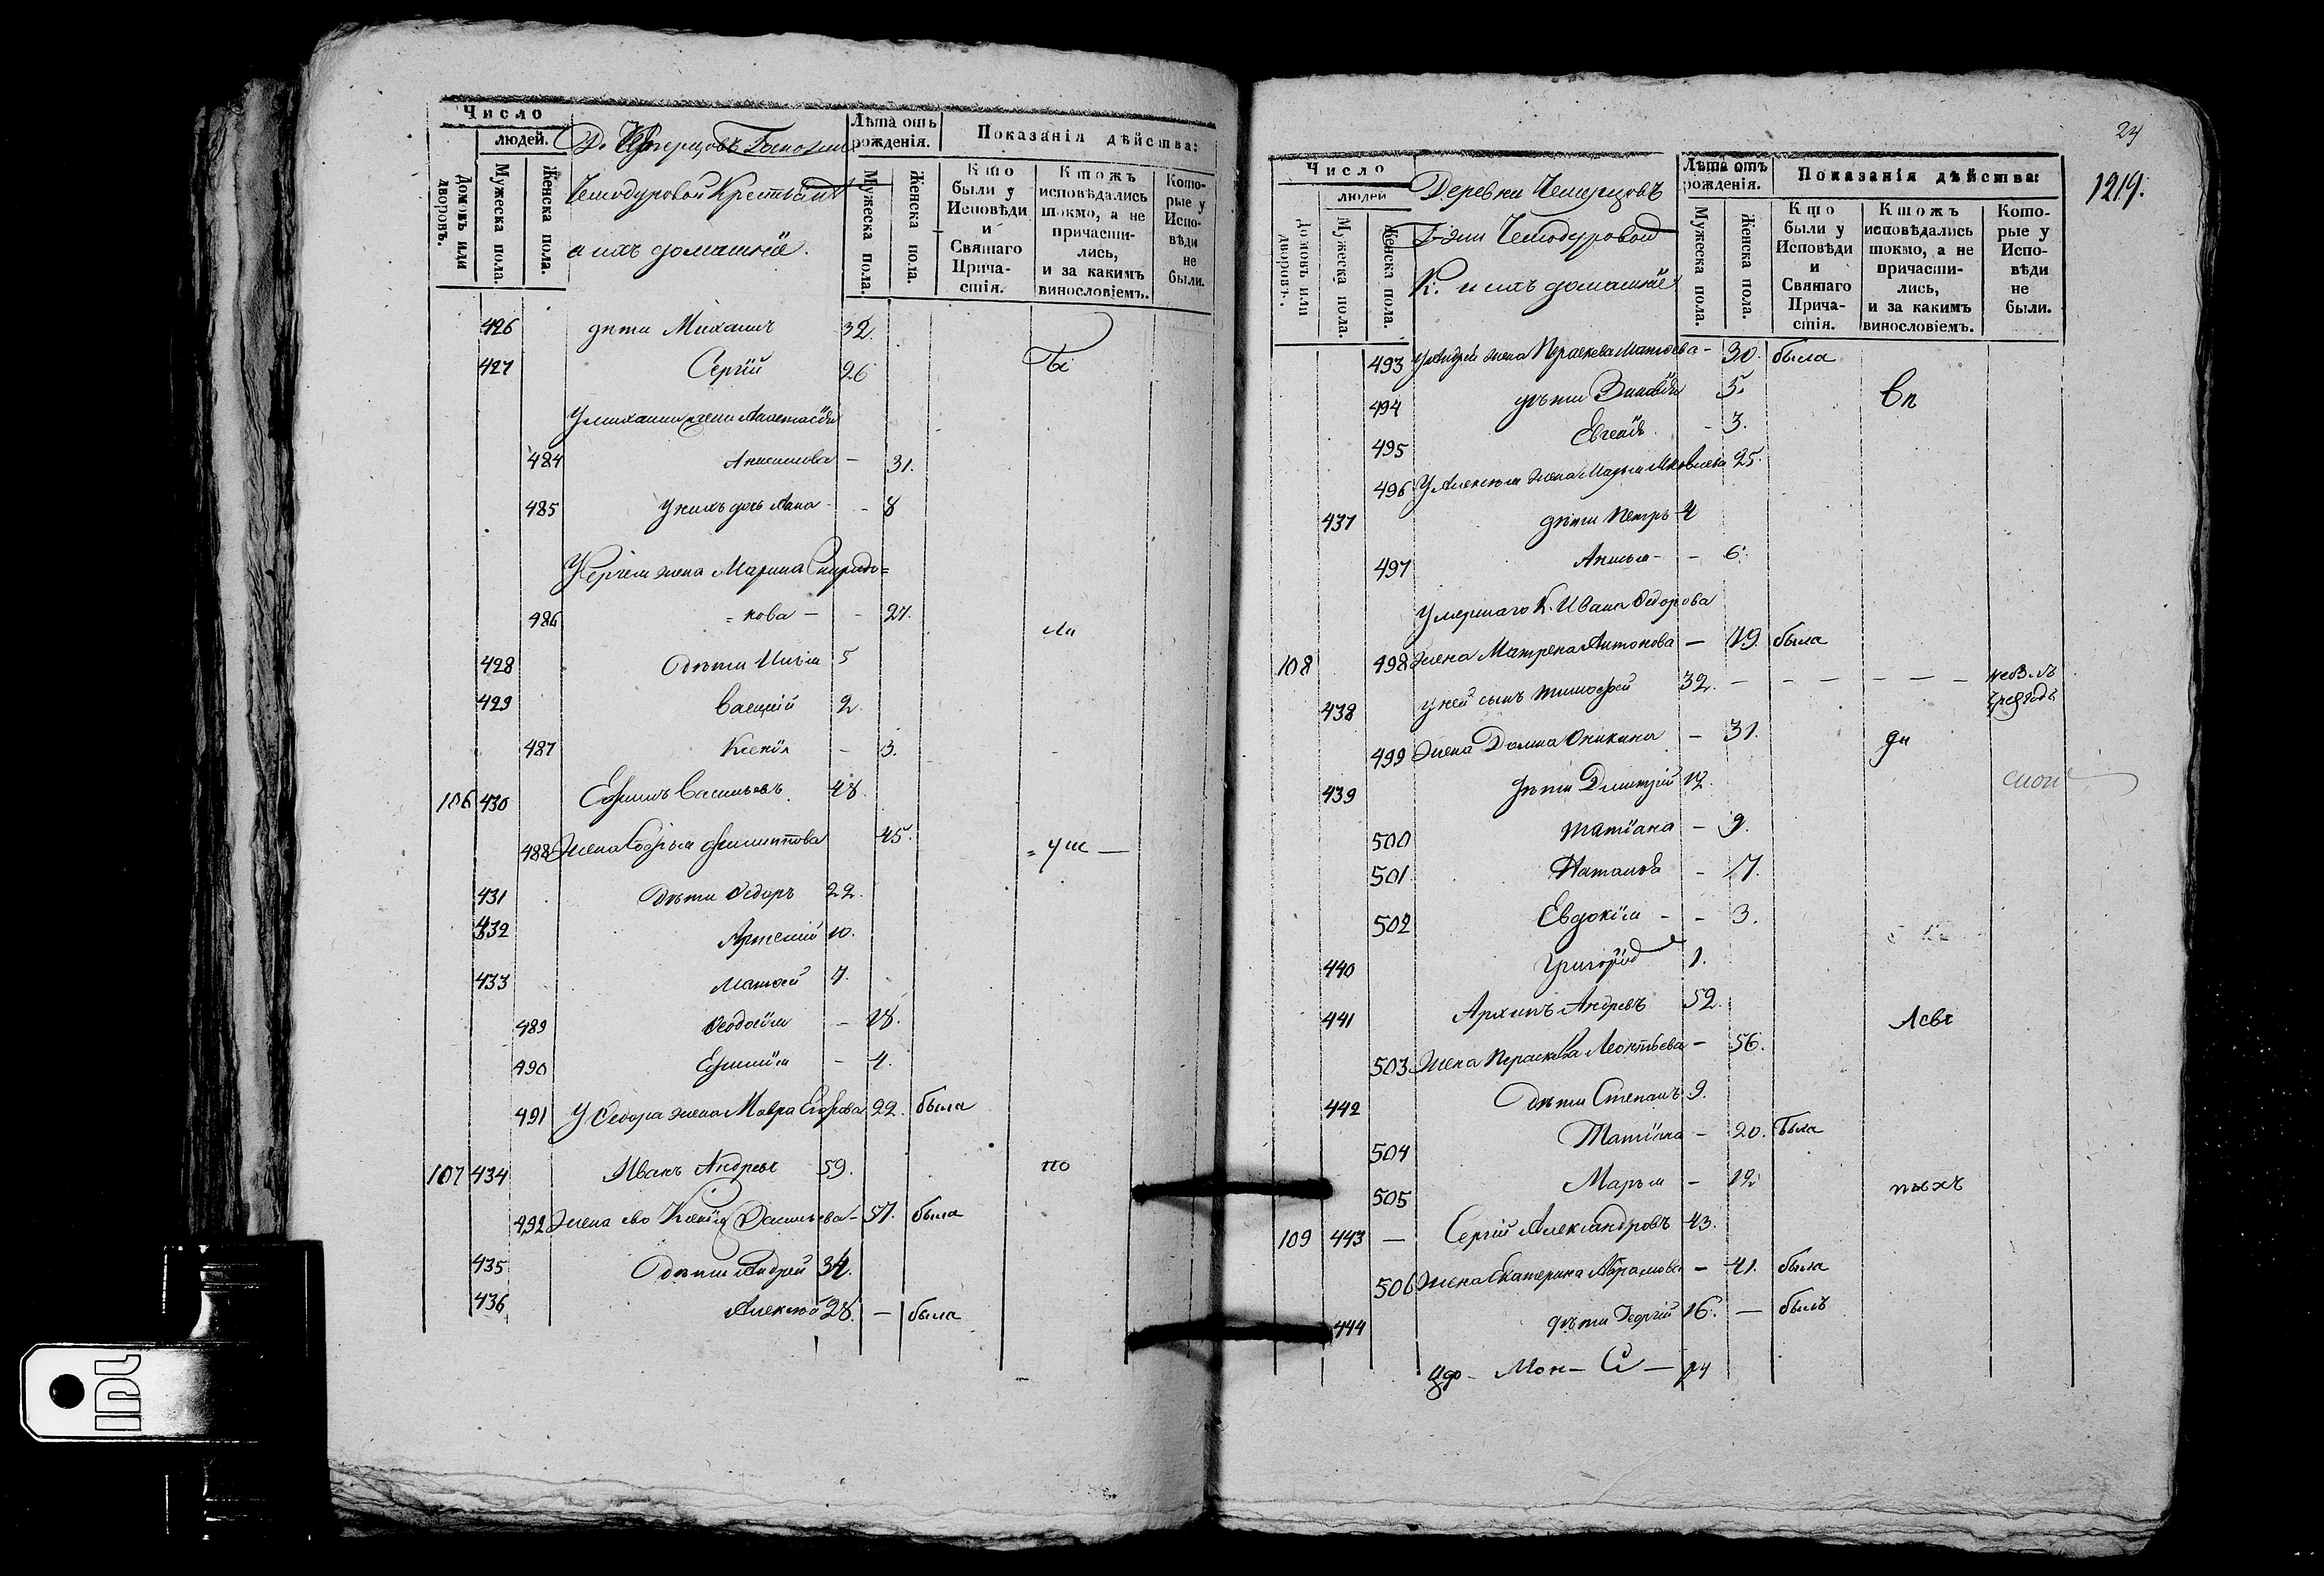 Число
людей.
Домовъ или дворовъ.
Мужеска пола.
Женска пола.
Крестьяне
а ихъ домашнія.
Лѣта отъ рождения.
Мужеска пола.
Женска пола.
Показанія дѣйства:
Кто были у Исповѣди и Святаго Причастія.
Ктожъ исповѣдались токмо, а не причастились, и за какимъ винословіемъ.
Которые у Исповѣди не были.
426 дѣти Михаилъ 32.
427 Сергій 26
У михаила жена Анастасія
484 Анисимова – 31.
485 у нихъ дочь Анна - 8
У Сергія жена Марина Спиридо=
486 =нова – - 27.
428 Дѣти Илья 5
429 Василій 2.
487 Ксенія – 3.
106 430 Ефимъ Васильевъ 48.
488 Жена Софья Филиппова 45.
431 Дѣти Ѳедоръ 22.
432 Артемій 10.
433 Матѳей 7.
489 Ѳеодосія – 18.
490 Ефимія – 4.
491 У Ѳедора жена Мавра Егорова 22. была
107 434 Иванъ Андреевъ 59.
492 Жена ево Ксенія Васильева – 57. была
435 Дѣти Андрей 34.
436 Алексѣй 28. – была
24
1219.
Число
людей
Домовъ или дворовъ.
Мужеска пола.
Женска пола.
Деревни
К. и ихъ домашніе
Лѣта отъ рождения.
Мужеска пола.
Женска пола.
Показанія дѣйства:
Кто были у Исповѣди и Святаго Причастія.
Ктожъ исповѣдались токмо, а не причастились, и за какимъ винословіемъ.
Которые у Исповѣди не были.
493 У Андрея жена Параскева Матѳеева – 30. была
494 дѣти Зиновія 5.
495 Евгенія - 3.
496 У Алексѣя жена Марья Яковлева 25.
437 дѣти Петръ 4
497 Анисья - - 6.
Умершаго К. Ивана Ѳедорова
108 498 Жена Матрена Антонова – 49. была
438 у ней сынъ Тимоѳей 32.
499 Жена Домна Оникина – 31.
439 Дѣти Димитрій 12.
500 Татіана – 9.
501 Наталья - 7.
502 Евдокія - - 3.
440 Григорій 1.
441 Архипъ Андреевъ 52.
503 Жена Параскева Леонтьева – 56.
442 Дѣти Степанъ 9.
504 Татіана – 20. была
505 Марья – 12
109 443 — Сергій Александровъ 43.
506 Жена Екатерина Абрамова – 41. была
444 дѣти Георгій 16. — былъ